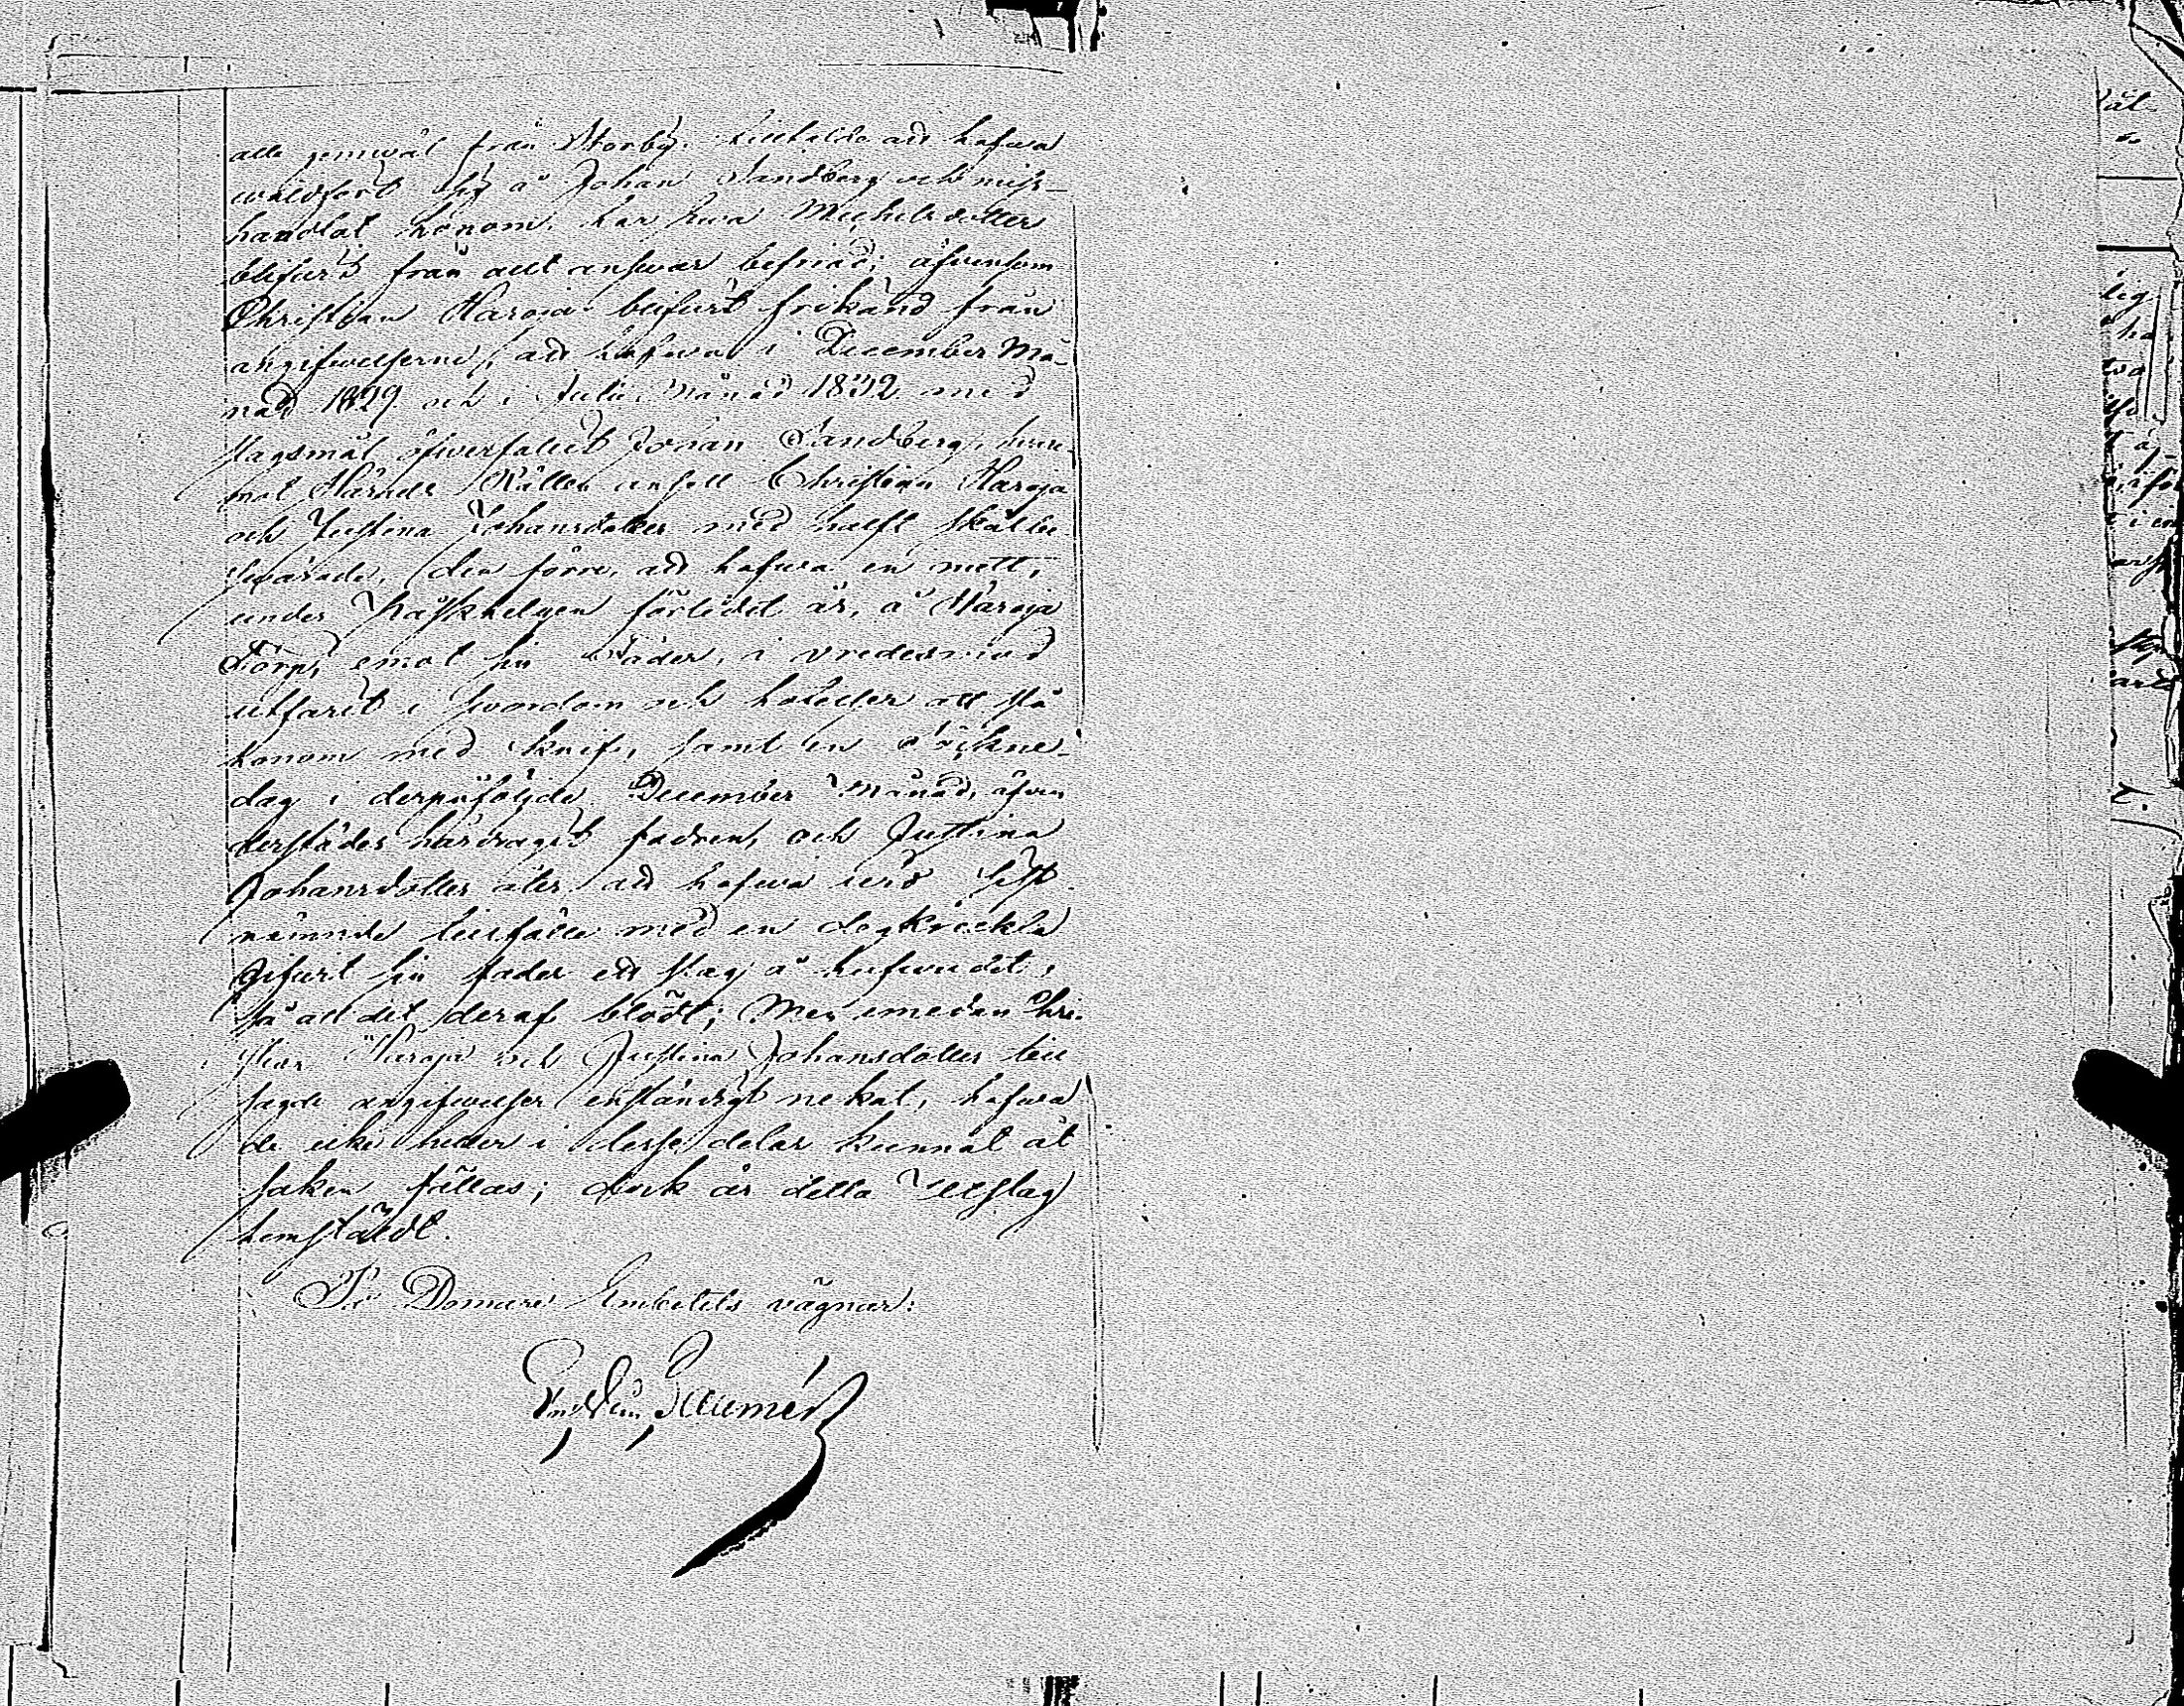 alla gemwäl från Storby. tillhaldo att hafwa
wåldfört sig å Johan Sandberg och miss-
handlat honom, har Lisa Michelsdotter
blifwit från allt answar befriad; äfwensom
Christian Haroja blifwit frikänd från
angifwelserne, att hafwa i December Må-
nad 1829 och i Julii Månad 1832 med
slagsmål öfwerfallit Johan Sandberg, hwar-
mot Härads Rätten ansett Christian Haroja
och Justina Johansdotter med half skäl be-
swärade, den förre, att hafwa en natt,
under Påskhelgen förledit år, å Haroja
Torp, emot sin Fader, i vredesmod
utfarit i swordom och hotelser att slå
honom med knif, samt en Söckne-
dag i derpåföljde December Månad, äfwen
derstädes hårdragit fadren, och Justina
Johansdotter åter, att hafwa wid sist-
nämnde tillfälle med en degkräckla
gifwit sin fader ett slag å hufwudet,
så att det deraf blödt; Men emedan Chri-
stian Haroja och Justina Johansdotter till
sagde angifwelser enständigt nekat, hafwa
de icke heller i desse delar kunnat åt
saken fällas; dock är detta Utslag
hemstäldt.
På Domare Embetets vägnar: